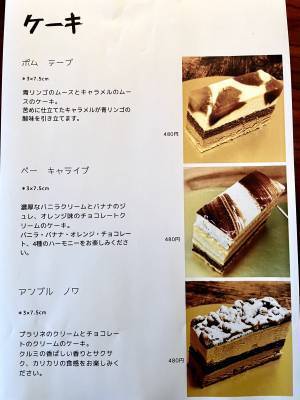 ケーキ
ポム　テープ
*3×7.5cm
青リンゴのムースとキャラメルのムー
スのケーキ。
苦めに仕立てたキャラメルが青リンゴの
酸味を引き立てます。
480円
ベー　キャライブ
*3×7.5cm
濃厚なバニラクリームとバナナのジ
ュレ、オレンジ味のチョコレートク
リームのケーキ。
バニラ・バナナ・オレンジ・チョコレー
ト、4種のハーモニーをお楽しみくださ
い。
480円
アンブル　ノワ
*3×7.5cm
プラリネのクリームとチョコレー
トのクリームのケーキ。
クルミの香ばしい香りとサクサ
ク、カリカリの食感をお楽しみく
ださい。
480円